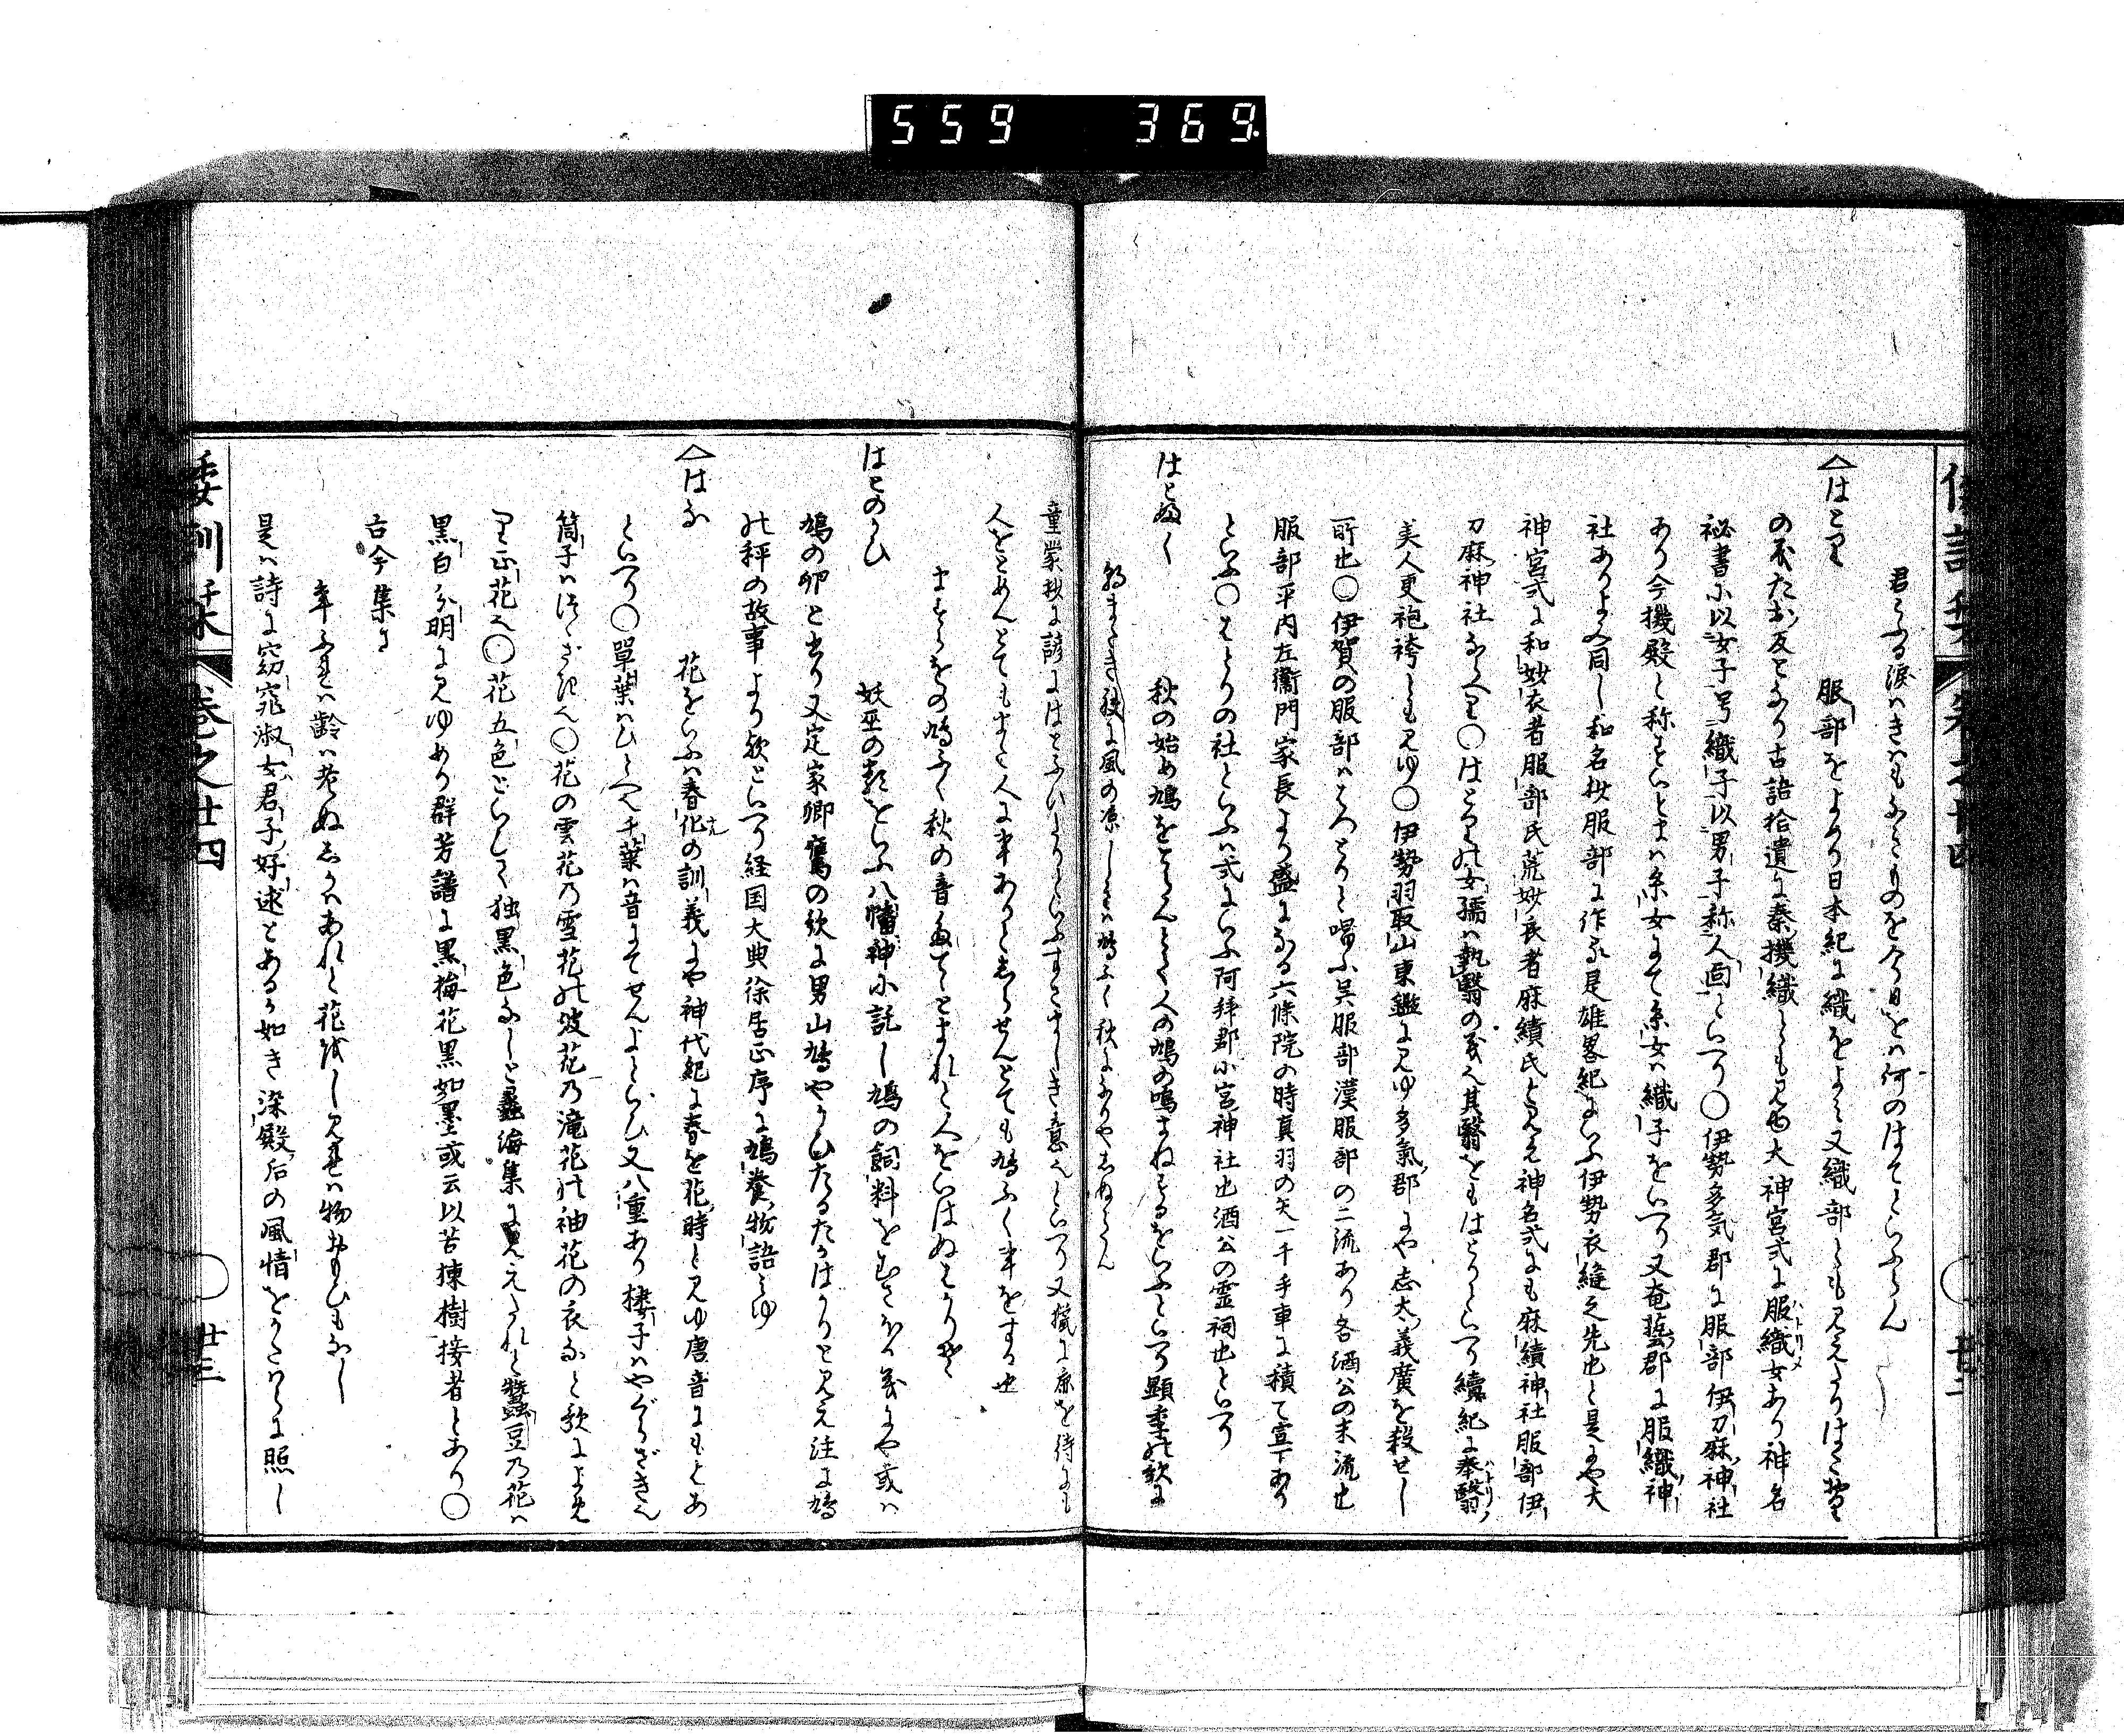 559 369
君こふる涙ハきハもなきものを今日をハ何のはてといふらん
はとり 服部をよめり日本紀に織をよみ又織部とも見えたり
の反たお反となり古語拾遺に秦機織とも見ゆ大神宮式に服織女あり神名
祕書に以女子号織子以男子称人面といへり○伊勢多気郡に服部伊刀麻神社
あり今機殿と称すいとまハ糸女にて糸女ハ織子をいへり又奄藝郡に服織神
社ありよみ同し和名抄服部に作る是雄畧紀にいふ伊勢衣縫之先也と是にや大
神宮式に和妙衣者服部氏荒妙衣者麻績氏と見え神名式にも麻績神社服部伊
刀麻神社ならへり○はとりの女孺ハ執翳の義へ其翳をもはとりといへり續紀に奉翳
美人更袍袴とも見ゆ○伊勢羽取山東鑑に見ゆ多氣郡にや志太義廣を殺せし
所也○伊賀の服部ハはつとりと唱ふ呉服部漢服部の二流あり各酒公の末流也
服部平内左衞門家長より盛になる六條院の時真羽の矢一千手車に積て宣下あり
といふ○はとりの社といふハ式にいふ阿拝郡小宮神社也酒公の霊祠也といへり
はとふく 秋の始め鳩をとらんとて人の鳩の鳴まねするをいふといへり顕季の歌に
朝またき袂に風の凉しきハ鳩ふく秋になりやしぬらん
童蒙抄に諺にはとふけりといふすさましき意へといへり又猟に鹿を待にも
人をとめんとてもまた人に事ありとしらせんとても鳩ふく事をする也
ますらをの鳩ふく秋の音たてゝとまれと人をいはぬはかりそ
はとのかひ 妖巫の類をいふ八幡神に託し鳩の飼料をむさほる義にや或ハ
鳩の卵と書り又定家卿鷹の歌に男山鳩やかひたるたかはかりと見え注に鳩
の秤の故事より歟といへり経国大典徐居正序に鳩養物語とゆ
はな 花をいふハ春化の訓義にや神代紀に春を花時と見ゆ唐音にもとあ
といへり○單葉ハひとへ千葉ハ音にてせんよといひ又八重あり棣子ハやぐらざきへ
筒子ハほゝざきへ○花の雲花の雪花の波花の滝花の袖花の衣なと歌によめ
り正花へ○花五色といらして独黒色なしと蠡海集に見えたれと蠶豆の花ハ
黒白分明に見ゆあり群芳譜に黒梅花黒如墨或云以苦楝樹接者とあり○
古今集に
年ふれハ齢ハ老ぬしかハあれと花をし見れハ物おもひもなし
是ハ詩に窈窕淑女君子好逑とあるか如き深殿后の風情をうたハらに照し
倭訓栞 巻之廿四 廿三